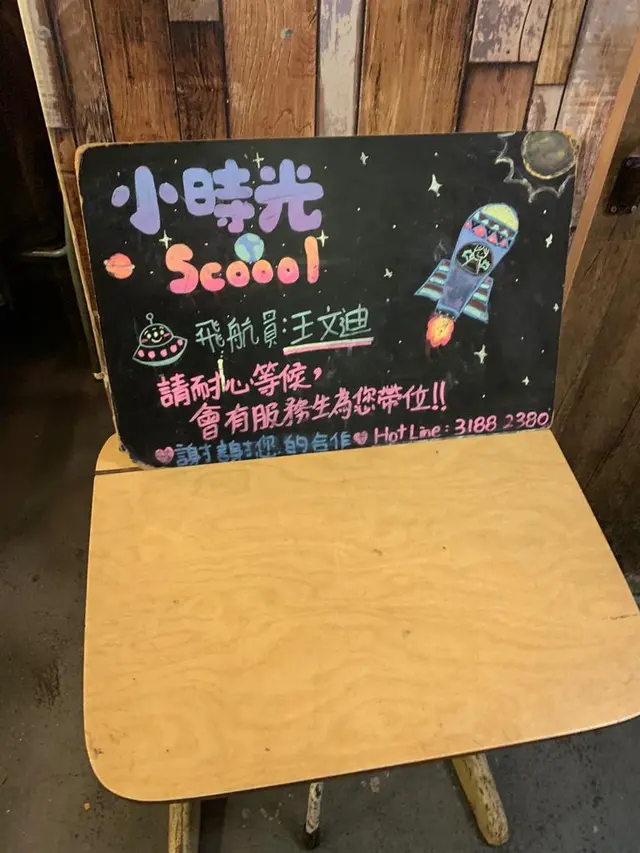 小時光
Scoool
飛航員:王文迪
請耐心等候,
會有服務生為您帶位!!
謝謝您的合作 HotLine: 3188 2380